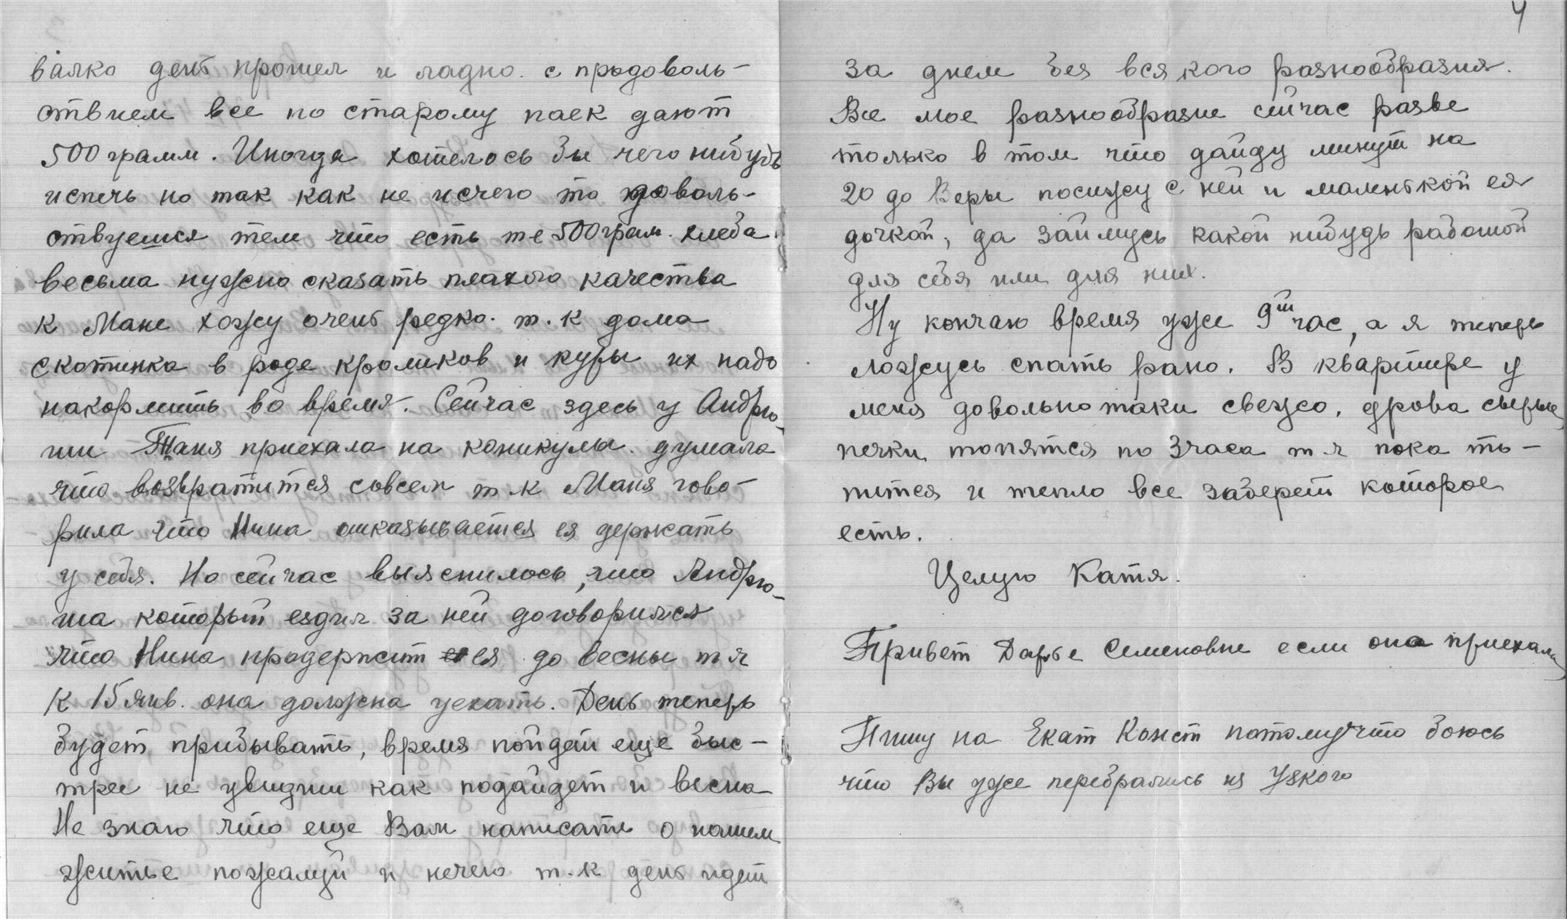 валко день прошел и ладно. с продоволь-
ствием все по старому паек дают
500 грамм. Иногда хотелось бы чего нибудь
испечь но так как не исчего то доволь-
ствуешся тем что есть те 500 грам. хлеба.
весьма нужно сказать плахого качества
к Мане хожу очень редко. т.к дома
скотинка в роде кроликов и куры их надо
накормить во время. Сейчас здесь у Андрю-
ши Таня приехала на коникулы. думала
что возвратится совсем т.к Маня гово-
рила что Нина отказывается ея держать
у себя. Но сейчас выяснилось, что Андрю-
ша который ездил за ней договорился
что Нина продержит ея до весны т я
к 15 янв. она должна уехать. День теперь
будет прибывать, время пойдет еще быс-
трее не увидиш как подайдет и весна
Не знаю что еще Вам написать о нашем
житье пожалуй и нечего т.к день идет
4
за днем без всякого разнообразия.
Все мое разнообразие сейчас разве
только в том что дайду минут на
20 до Веры посижу с ней и маленькой ея
дочкой, да займусь какой нибудь работой
для себя или для них.
Ну кончаю время уже 9ый час, а я теперь
ложусь спать рано. В квартире у
меня довольно таки свежо, дрова сырые,
печки топятся по 3 часа т я пока то-
пится и тепло все заберет которое
есть.
Целую Катя.
Привет Дарье Семеновне если она приехала
Пишу на Екат Конст потому что боюсь
что Вы уже перебрались из Узкого